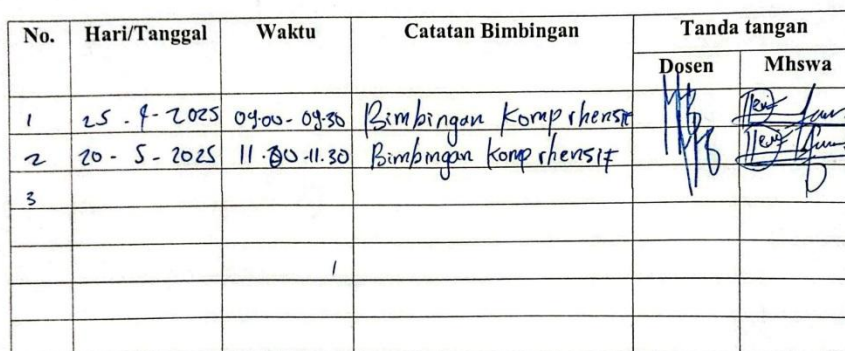 No. Hari/Tanggal Waktu Catatan Bimbingan Tanda tangan
Dosen Mhswa
1 25 - 4 - 2025 09.00 - 09.30 Bimbingan Komprhensif
2 20 - 5 - 2025 11.00 - 11.30 Bimbingan Komprhensif
3